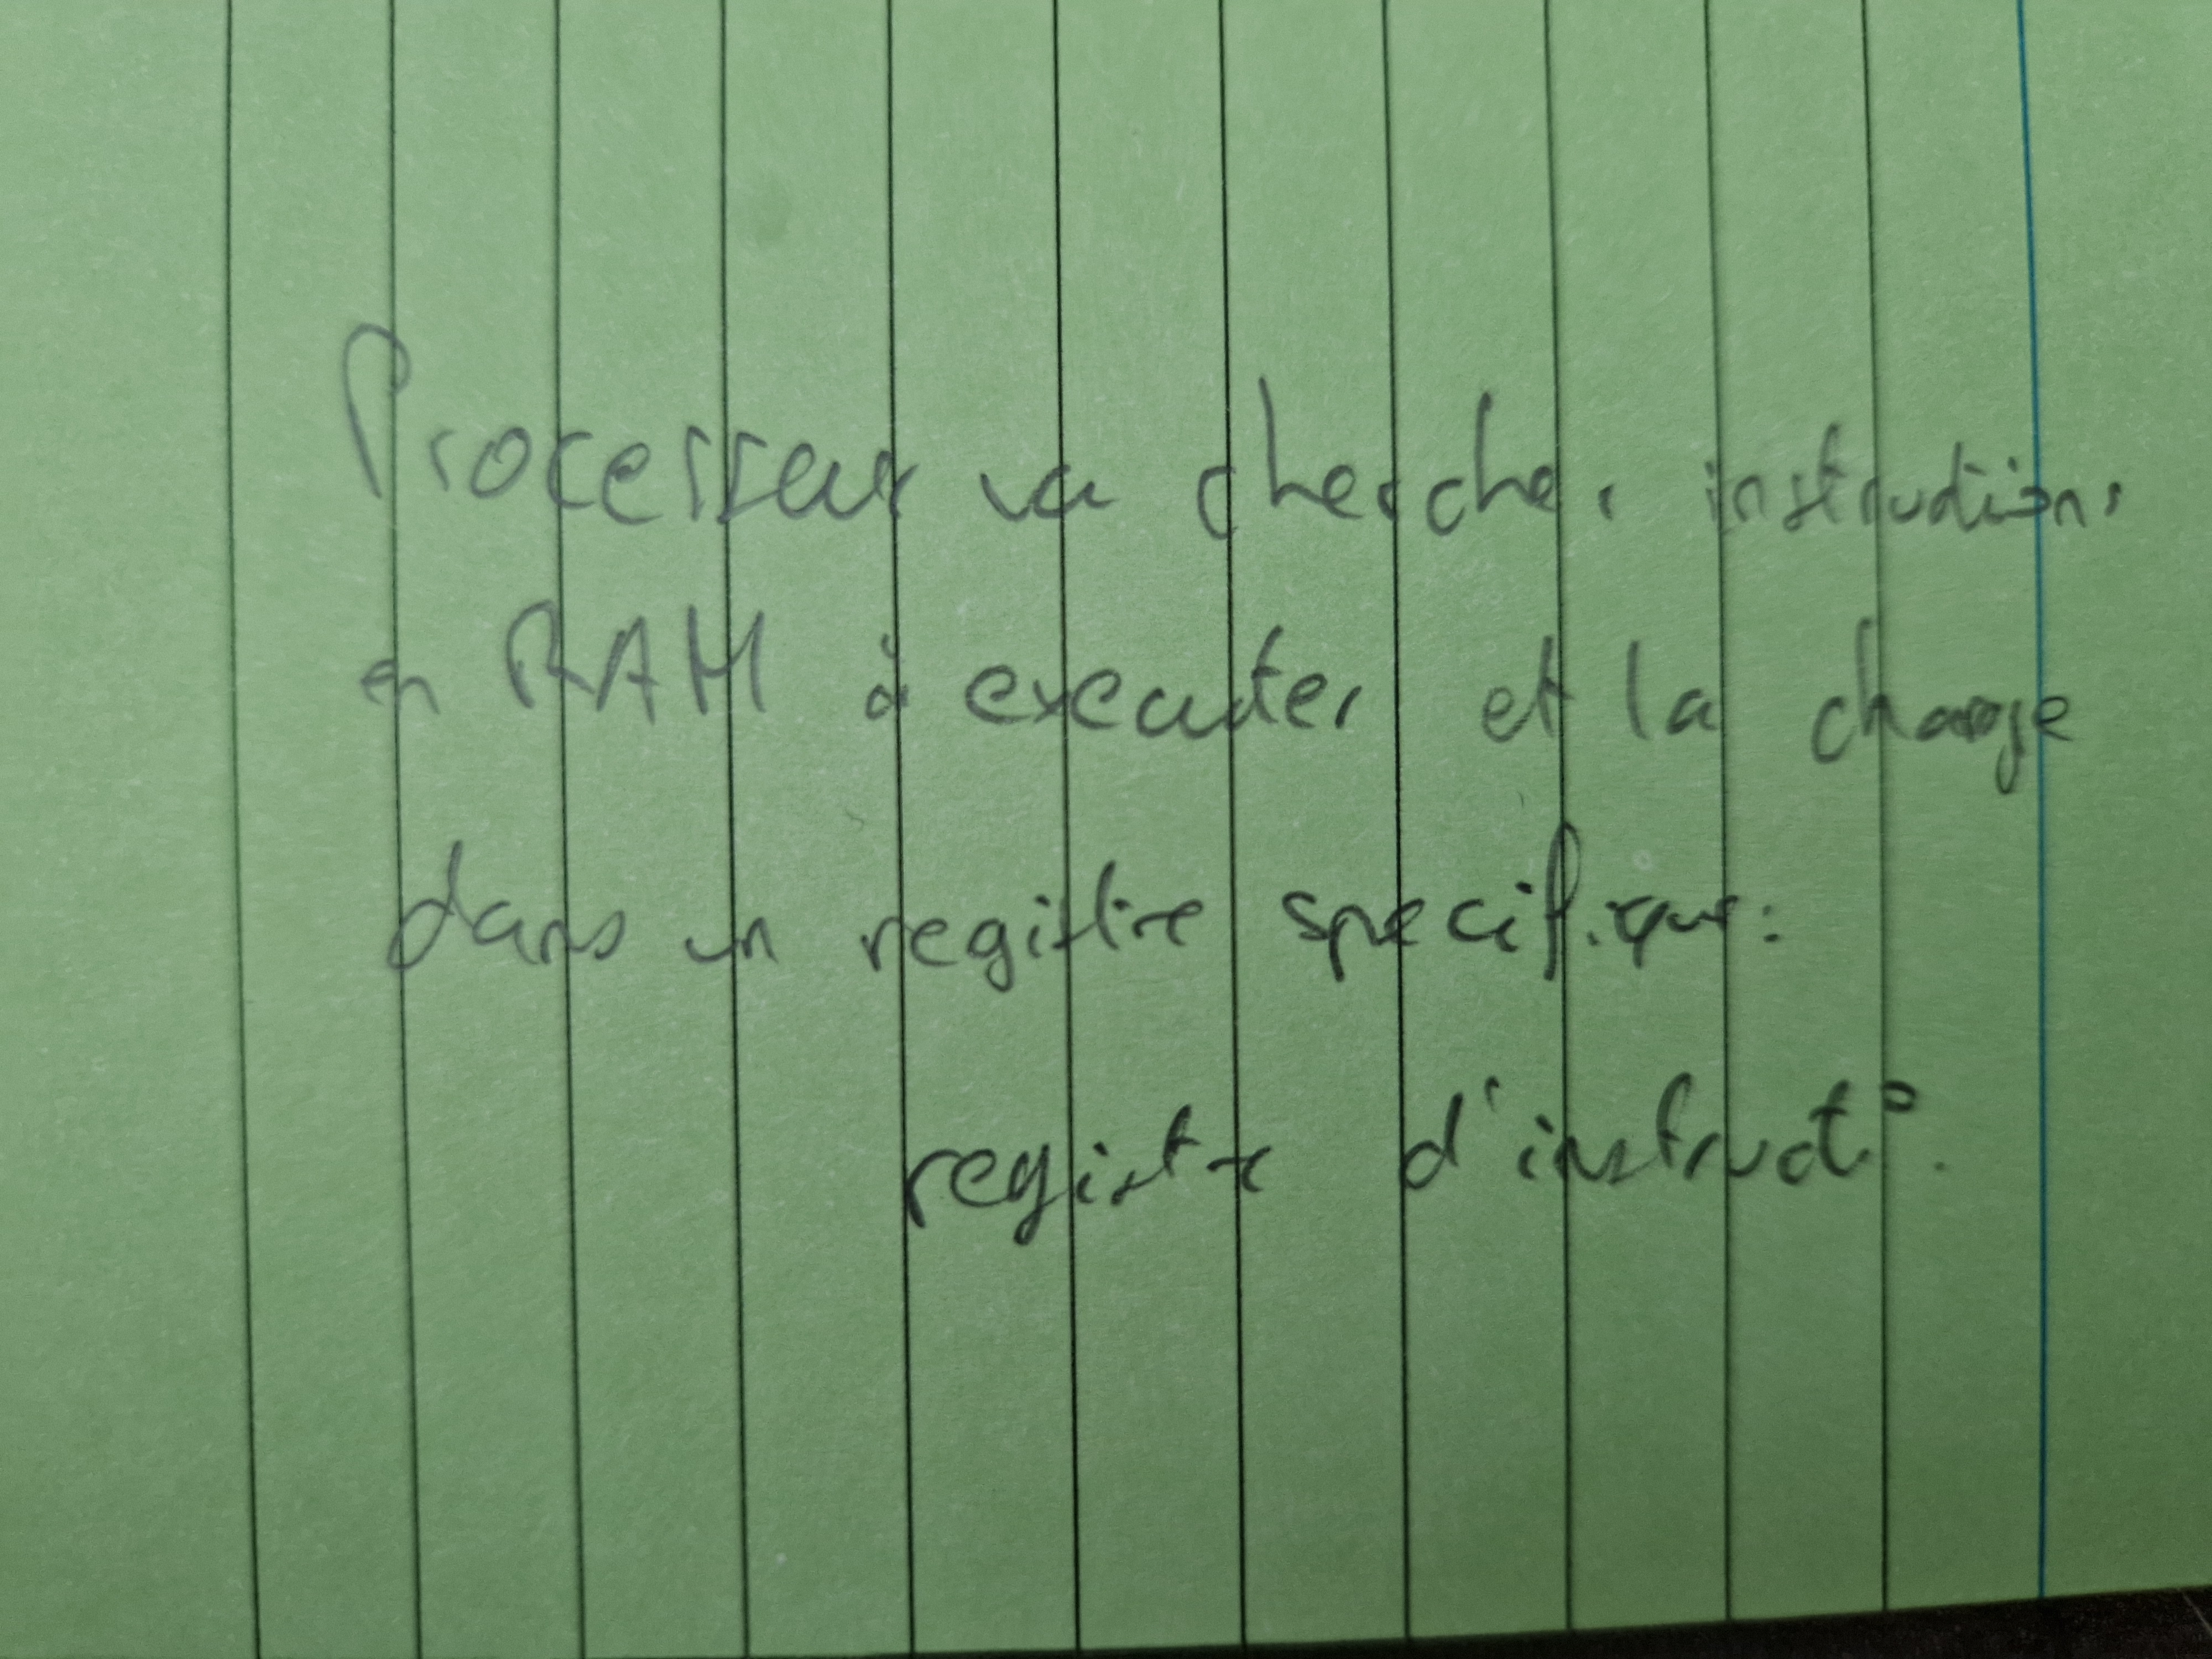 Processeur va chercher instructions
en RAM à executer et la charge
dans un registre specifique:
registre d'instruct°.